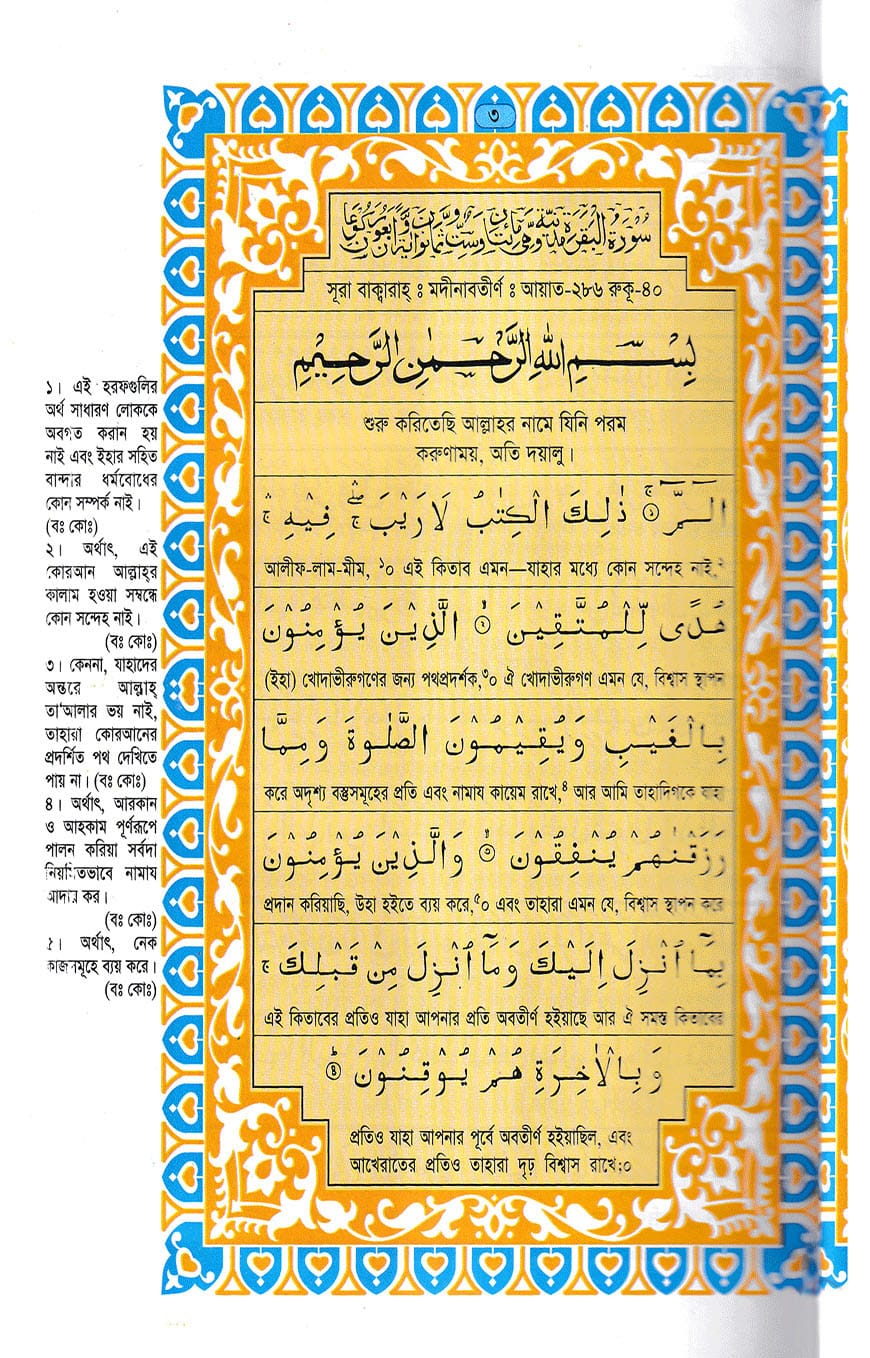 ৩
سُورَةُ الْبَقَرَةِ مَدَنِيَّةٌ وَّهِيَ مِائَتَانِ وَسِتٌّ وَّثَمَانُونَ اٰيَةً وَّاَرْبَعُونَ رُكُوعًا
সূরা বাক্বারাহ্ ঃ মদীনাবতীর্ণ ঃ আয়াত-২৮৬ রুকূ-৪০
بِسْمِ اللهِ الرَّحْمٰنِ الرَّحِيْمِ
শুরু করিতেছি আল্লাহর নামে যিনি পরম
করুণাময়, অতি দয়ালু।
الٓـمّٓ ۚ ① ذٰلِكَ الْكِتٰبُ لَا رَيْبَ ۛۖۚ فِيْهِ ۛۚ
আলীফ-লাম-মীম, ১০ এই কিতাব এমন—যাহার মধ্যে কোন সন্দেহ নাই,২
هُدًى لِّلْمُتَّقِيْنَ ۙ الَّذِيْنَ يُؤْمِنُوْنَ
(ইহা) খোদাভীরুগণের জন্য পথপ্রদর্শক,৩০ ঐ খোদাভীরুগণ এমন যে, বিশ্বাস স্থাপন
بِالْغَيْبِ وَيُقِيْمُوْنَ الصَّلٰوةَ وَمِمَّا
করে অদৃশ্য বস্তুসমূহের প্রতি এবং নামায কায়েম রাখে,৪ আর আমি তাহাদিগকে যাহা
رَزَقْنٰهُمْ يُنْفِقُوْنَ ۙ وَالَّذِيْنَ يُؤْمِنُوْنَ
প্রদান করিয়াছি, উহা হইতে ব্যয় করে,৫০ এবং তাহারা এমন যে, বিশ্বাস স্থাপন করে
بِمَاۤ اُنْزِلَ اِلَيْكَ وَمَاۤ اُنْزِلَ مِنْ قَبْلِكَ ۚ
এই কিতাবের প্রতিও যাহা আপনার প্রতি অবতীর্ণ হইয়াছে আর ঐ সমস্ত কিতাবের
وَبِالْاٰخِرَةِ هُمْ يُوْقِنُوْنَ ؕ ④
প্রতিও যাহা আপনার পূর্বে অবতীর্ণ হইয়াছিল, এবং
আখেরাতের প্রতিও তাহারা দৃঢ় বিশ্বাস রাখে;০
১। এই হরফগুলির
অর্থ সাধারণ লোককে
অবগত করান হয়
নাই এবং ইহার সহিত
বান্দার ধর্মবোধের
কোন সম্পর্ক নাই।
(বঃ কোঃ)
২। অর্থাৎ, এই
কোরআন আল্লাহ্‌র
কালাম হওয়া সম্বন্ধে
কোন সন্দেহ নাই।
(বঃ কোঃ)
৩। কেননা, যাহাদের
অন্তরে আল্লাহ্
তা'আলার ভয় নাই,
তাহারা কোরআনের
প্রদর্শিত পথ দেখিতে
পায় না। (বঃ কোঃ)
৪। অর্থাৎ, আরকান
ও আহকাম পূর্ণরূপে
পালন করিয়া সর্বদা
নিয়মিতভাবে নামায
আদায় কর।
(বঃ কোঃ)
৫। অর্থাৎ, নেক
কাজসমূহে ব্যয় করে।
(বঃ কোঃ)